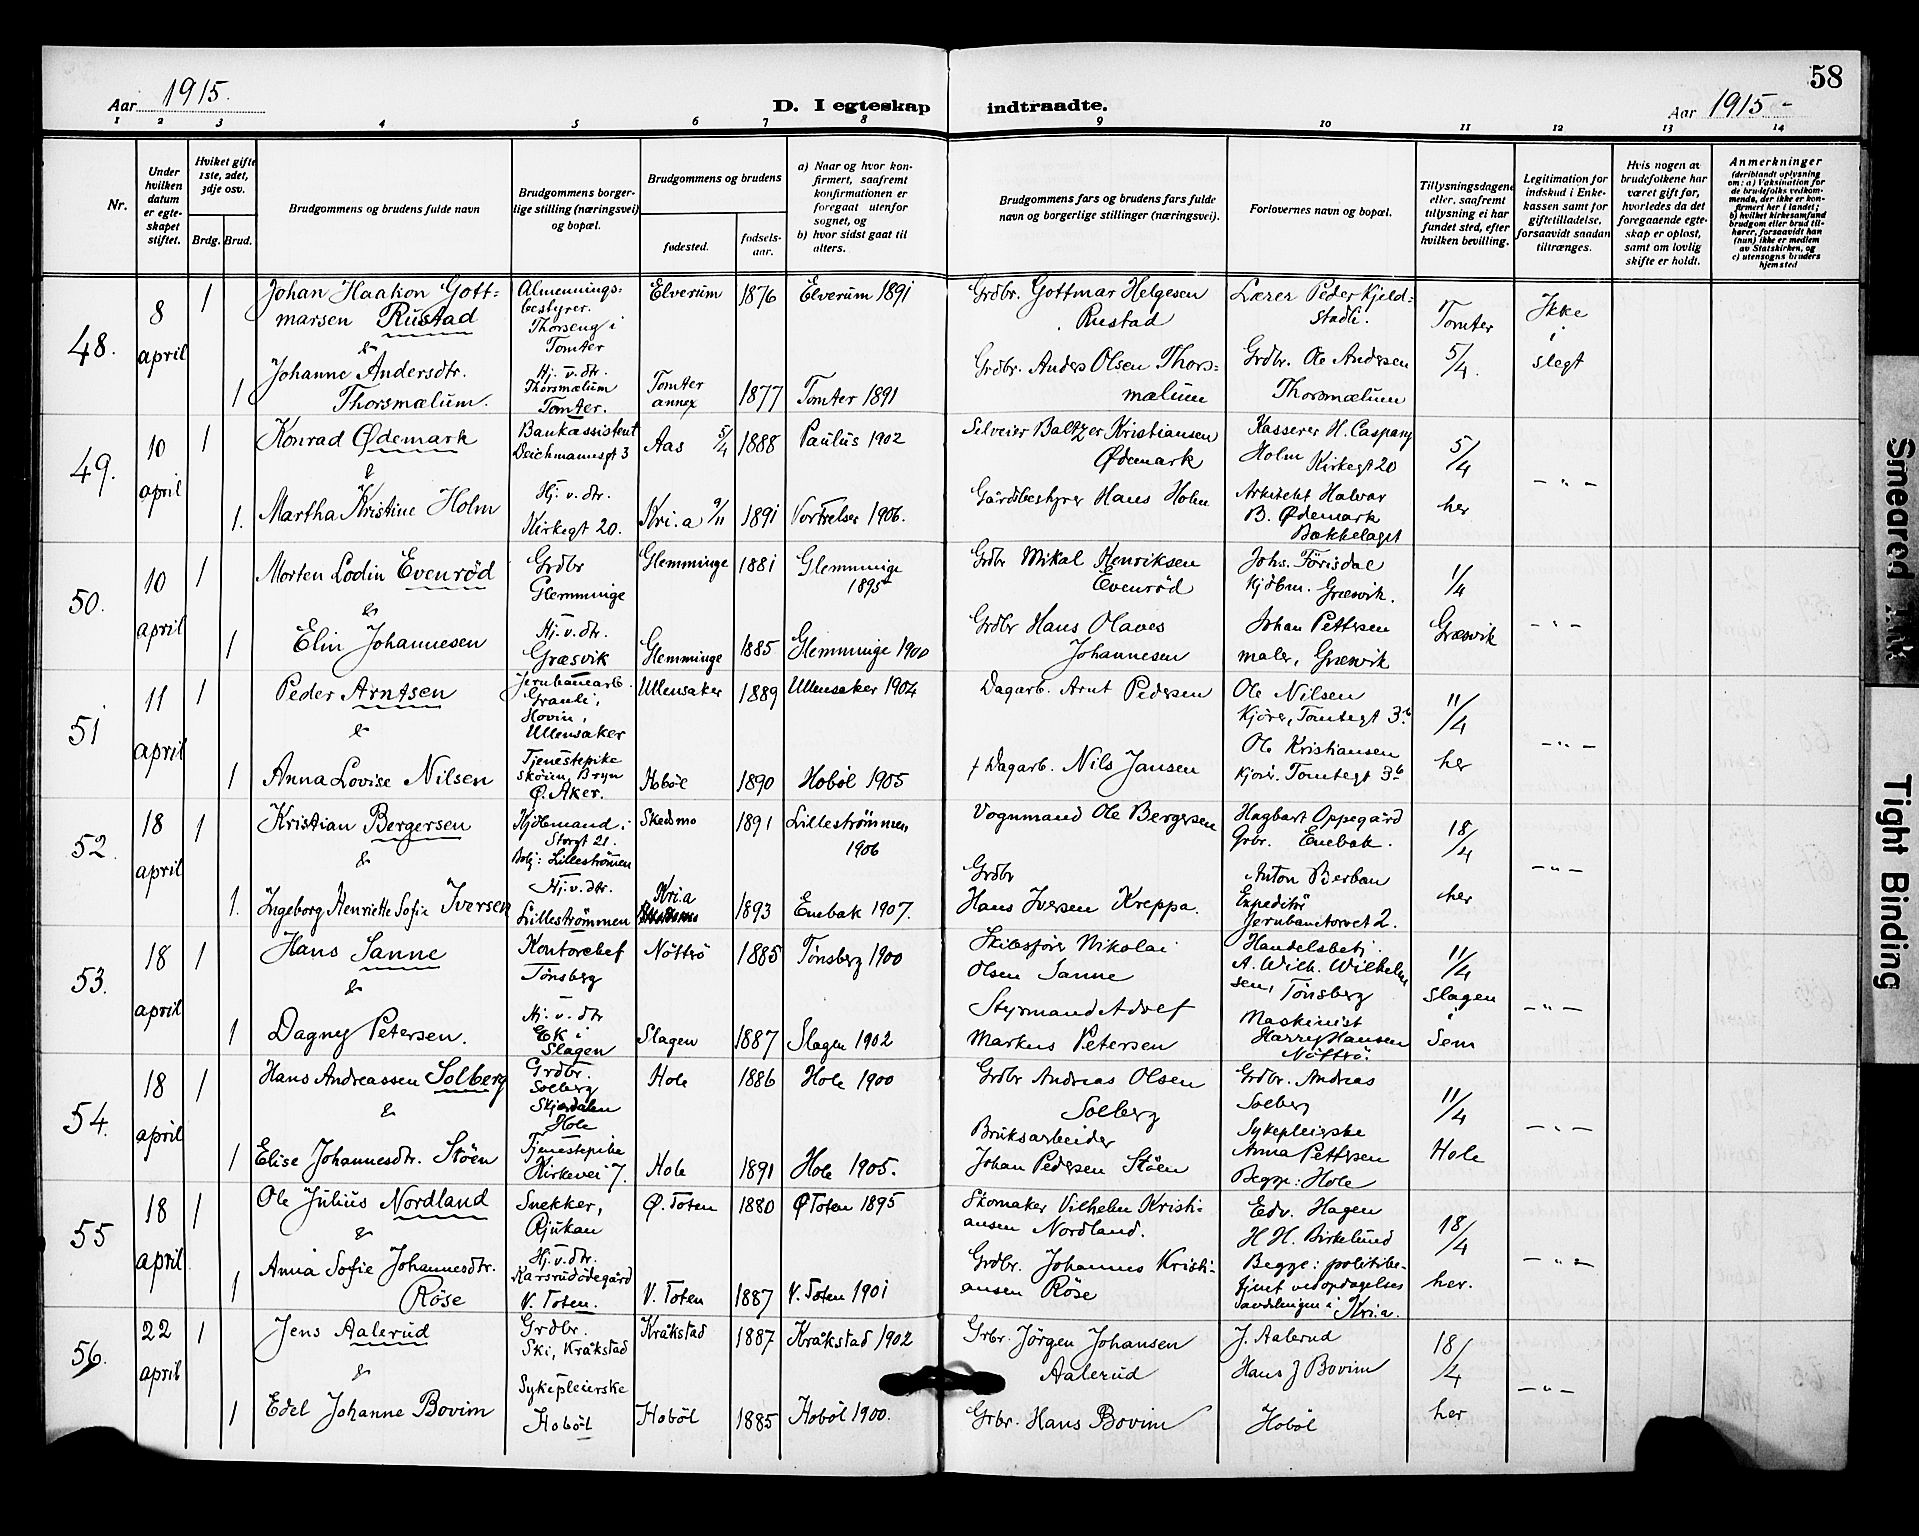 58
Aar 1915.
D. I egteskap indtraadte.
Aar 1915 -
1 2 3 4 5 6 7 8 9 10 11 12 13 14
Nr.
Under hvilken datum er egteskapet stiftet.
Hvilket gifte 1ste, 2det, 3dje osv.
Brdg. Brud.
Brudgommens og brudens fulde navn
Brudgommens borgerlige stilling (næringsvei) og bopæl.
Brudgommens og brudens
fødested.
fødselsaar.
a) Naar og hvor konfirmert, saafremt konfirmationen er foregaat utenfor sognet, og
b) hvor sidst gaat til alters.
Brudgommens fars og brudens fars fulde navn og borgerlige stillinger (næringsvei).
Forlovernes navn og bopæl.
Tillysningsdagene eller, saafremt tillysning ei har fundet sted, efter hvilken bevilling.
Legitimation for indskud i Enkekassen samt for giftetilladelse, forsaavidt saadan tiltrænges.
Hvis nogen av brudefolkene har været gift før, hvorledes da det foregaaende egteskap er opløst, samt om lovlig skifte er holdt.
Anmerkninger
(deriblandt oplysning om: a) Vaksination for de brudefolks vedkommende, der ikke er konfirmert her i landet; b) hvilket kirkesamfund brudgom eller brud tilhører, forsaavidt han (hun) ikke er medlem av Statskirken, og c) utensogns bruders hjemsted
48. 8 april
1 Johan Haakon Gottmarsen Rustad
Almenningsbestyrer. Thorseng i Tomter
Elverum 1876 Elverum 1891
Grdbr. Gottmar Helgesen Rustad
Lærer Peder Kjeldstadli.
Tomter 5/4.
Ikke i slegt
&
1 Johanne Andersdtr. Thorsmælum.
Hj. v. dtr. Thorsmælum Tomter.
Tomter annex 1877 Tomter 1891
Grdbr. Anders Olsen Thorsmælum
Grdbr. Ole Andersen Thorsmælum
49. 10 april
1 Konrad Ødemark
Bankassistent Deichmannsgt 3
Aas 5/4 1888 Paulus 1902
Selveier Baltzer Kristiansen Ødemark
Kasserer H. Caspary Holm Kirkegt 20
5/4 her
- " -
&
1. Martha Kristine Holm
Hj. v. dtr. Kirkegt 20.
Kri.a 9/11 1891 Vor Frelser 1906.
Gårdsbestyrer Hans Holm
Arkitekt Halvar B. Ødemark Bækkelaget
50. 10 april
1 Morten Lodin Evenrød
Grdbr Glemminge
Glemminge 1881 Glemminge 1895
Grdbr Mikal Henriksen Evenrød
Johs. Förisdal Kjöbm. Græsvik.
1/4 Græsvik
- " -
&
1 Elin Johannesen
Hj. v. dtr. Græsvik
Glemminge 1885 Glemminge 1900
Grdbr Hans Olaves Johannesen
Johan Pettersen maler, Græsvik
51 11 april
1 Peder Arntsen
Jernbanearb. Granli, Hovin, Ullensaker
Ullensaker 1889 Ullensaker 1904
Dagarb. Arnt Pedersen
Ole Nilsen Kjører, Tomtegt 3b
11/4 her
- " -
&
1 Anna Lovise Nilsen
Tjenestepike Skøien, Bryn Ø. Aker.
Hobøl 1890 Hobøl 1905
† Dagarb. Nils Jansen
Ole Kristiansen Kjører. Tomtegt 3b
52. 18 april
1 Kristian Bergersen
Kjøbmand i Storgt 21. Bolig: Lillestrømmen
Skedsmo 1891 Lillestrømmen 1906
Vognmand Ole Bergersen
Hagbart Oppegård Grbr. Enebak.
18/4 her
- " -
&
1. Ingeborg Henriette Sofie Iversen
Hj. v. dtr. Lillestrømmen
Kri.a 1893 Enebak 1907.
Grdbr Hans Iversen Kreppa.
Anton Berban Expeditør Jernbanetorvet 2.
53. 18 april
1 Hans Sanne
Kontorchef Tønsberg
Nøtterø 1885 Tønsberg 1900
Skibsfører Nikolai Olsen Sanne
Handelsbetj. A. Wilh. Wilhelmsen, Tønsberg
11/4 Slagen i Sem
- " -
&
1 Dagny Petersen.
Hj. v. dtr Ek i Slagen
Slagen 1887 Slagen 1902
Styrmand Adolf Markus Petersen
Maskinist Harry Hansen Nøtterø.
54. 18 april
1 Hans Andreassen Solberg
Grdbr. Solberg Skjærdalen Hole
Hole 1886 Hole 1900
Grdbr Andreas Olsen Solberg
Grdbr. Andreas Solberg
11/4 Hole
- " -
&
1 Elise Johannesdtr. Støen
Tjenestepike Kirkevei 7.
Hole 1891 Hole 1905.
Bruksarbeider Johan Pedersen Støen
Sykepleierske Anna Pettersen Begge: Hole
55 18 april
1 Ole Julius Nordland
Snekker, Rjukan
Ø. Toten 1880 Ø Toten 1895
Skomaker Vilhelm Kristiansen Nordland.
Edv. Hagen H. H. Birkelund
18/4 her.
- " -
&
1 Anna Sofie Johannesdtr. Röse
Hj. v. dtr. Karsrudødegård V. Toten.
V. Toten 1887 V. Toten 1901
Grdbr. Johannes Kristiansen Röse
Begge: politibetjent ved opdagelsesavdelingen i Kri.a.
56. 22 april
1 Jens Aalerud
Grdbr. Ski, Kråkstad
Kråkstad 1887 Kråkstad 1902
Grbr. Jörgen Johansen Aalerud
J. Aalerud
Hans J Bovim
18/4 her
- " -
&
1 Edel Johanne Bovim
Sykepleierske Hobøl
Hobøl 1885 Hobøl 1900.
Grbr. Hans Bovim
Hobøl
Smeared Ink
Tight Binding